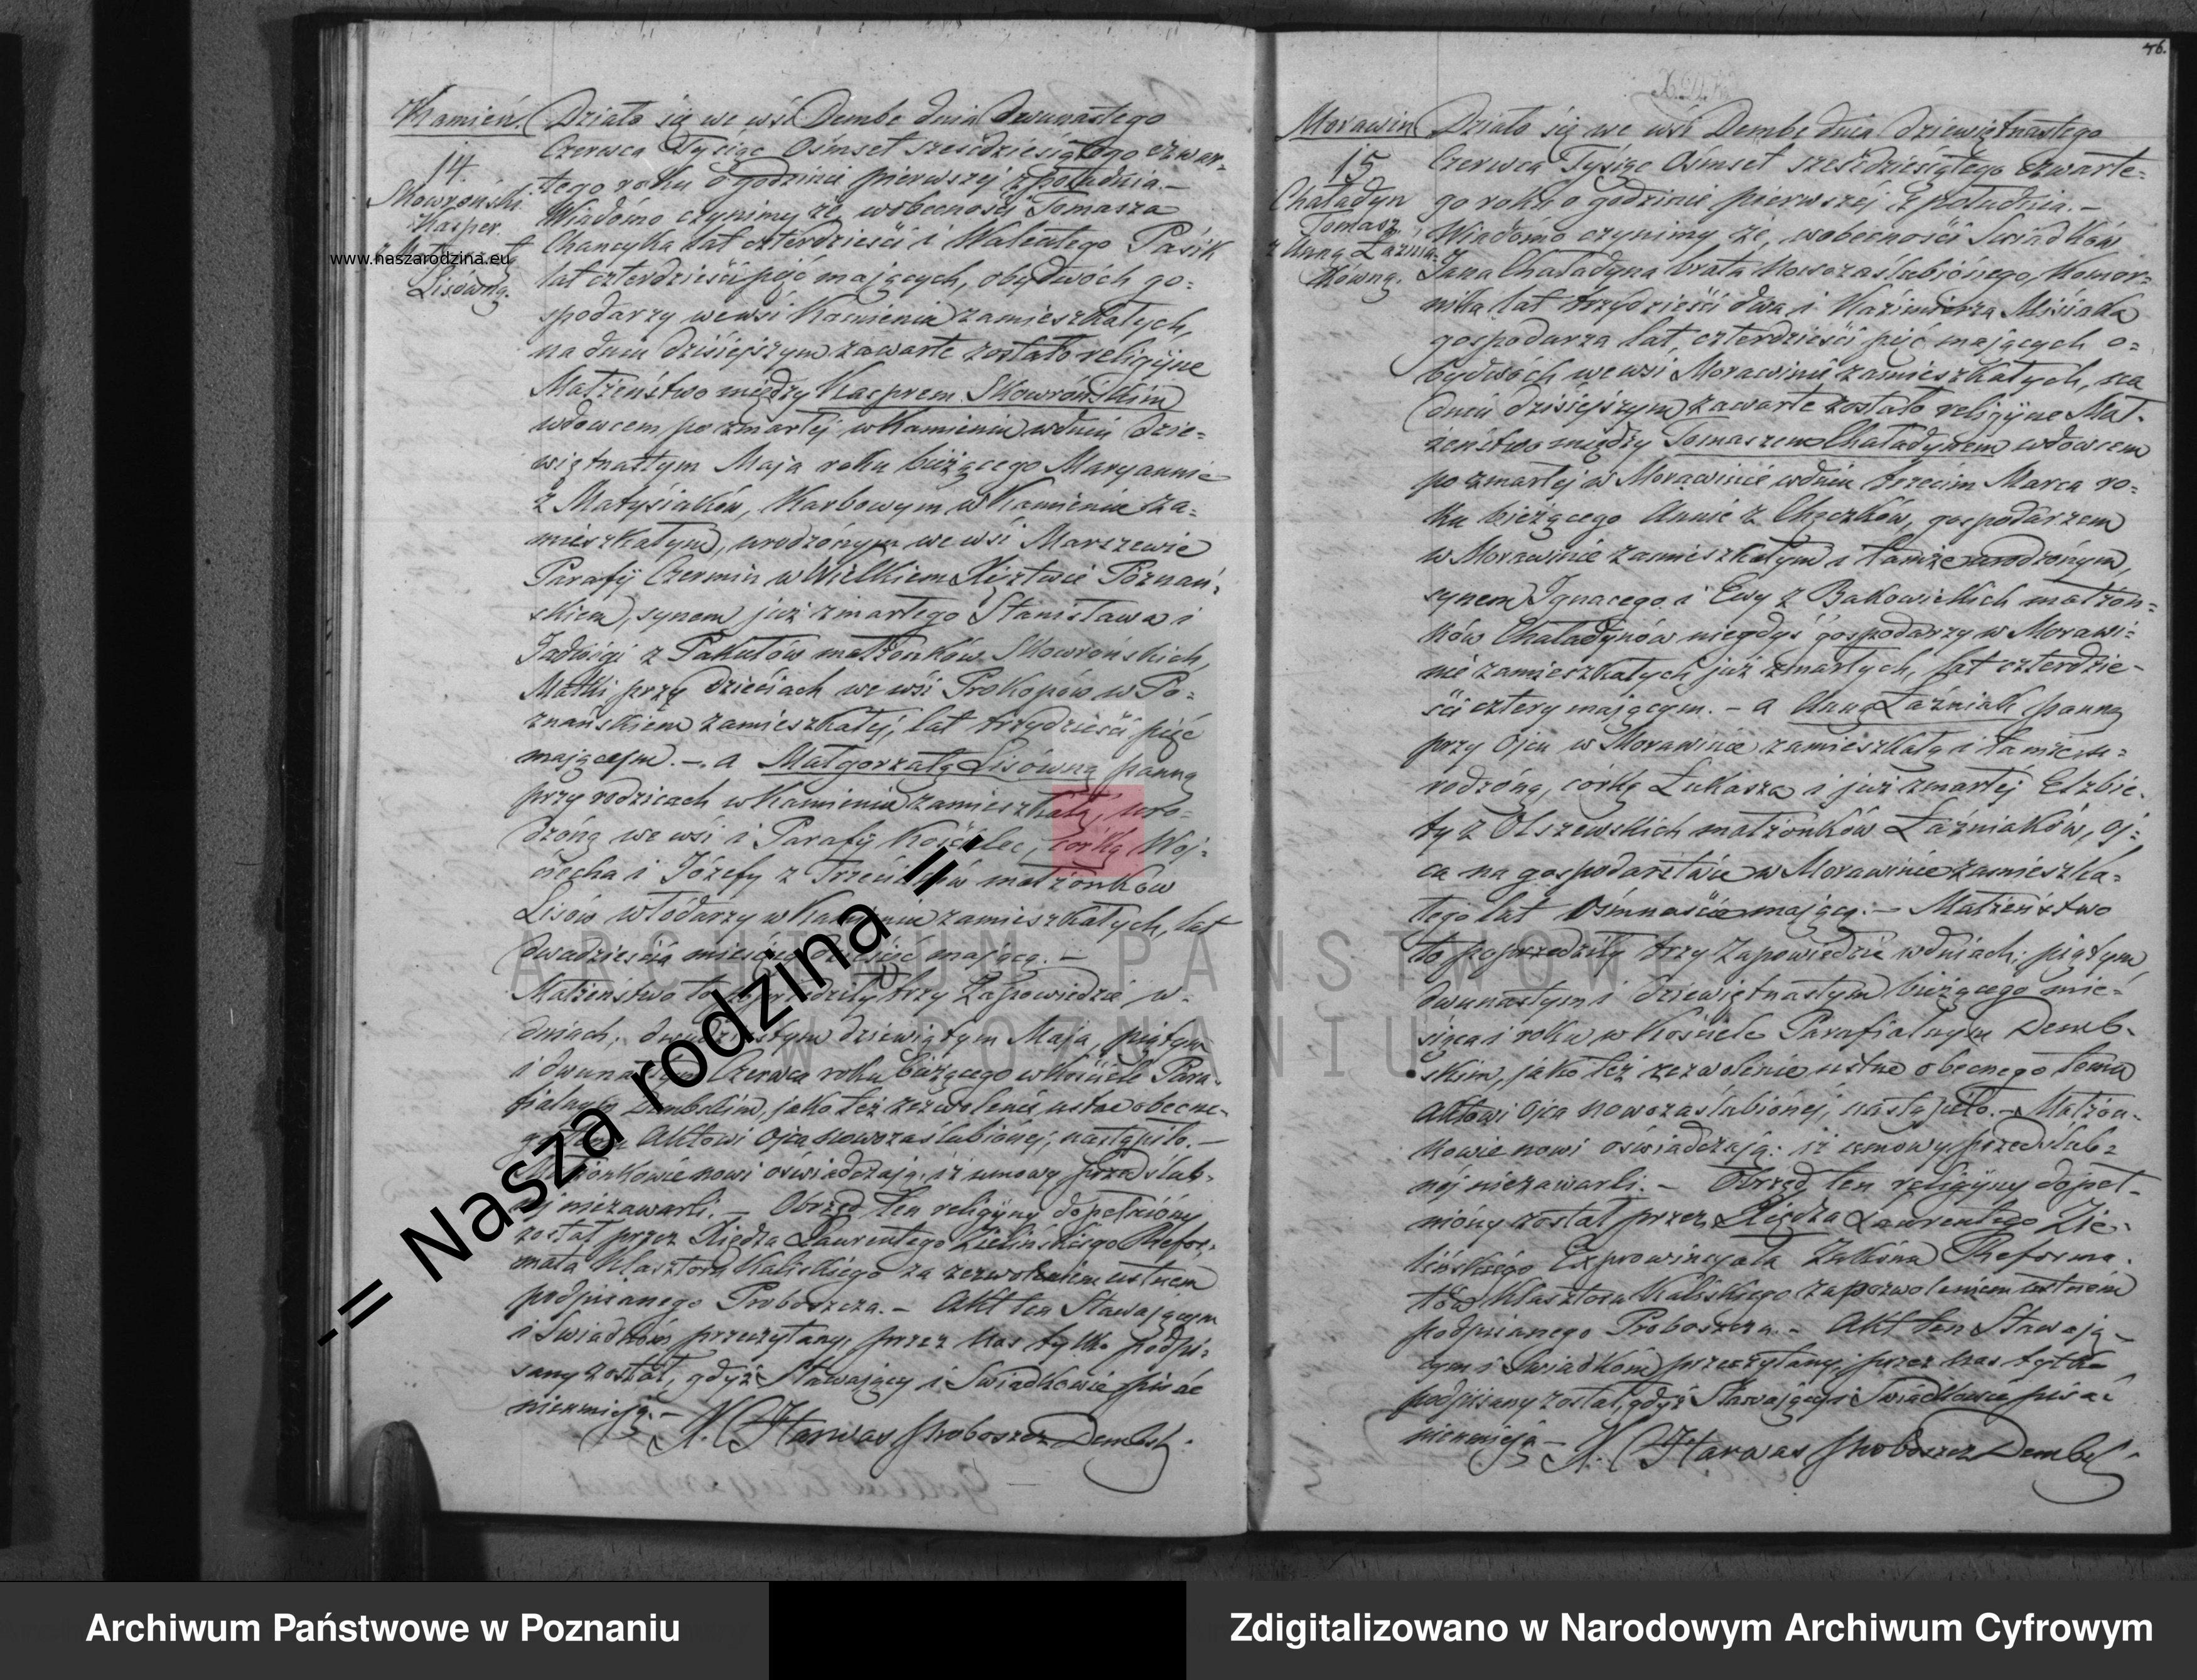 Kamień.
14.
Skowroński
Kasper.
z Małgorzatą
Lisówną.
www.naszarodzina.eu
Działo się we wsi Dembe dnia dwunastego
Czerwca Tysiąc Ośmset sześdziesiątego czwar-
tego roku o godzinie pierwszej z południa. –
Wiadomo czynimy że w obecności Tomasza
Chancyka lat czterdzieści i Walentego Pasik
lat czterdzieści pięć mających, obydwóch go=
spodarzy we wsi Kamieniu zamieszkałych,
na dniu dzisiejszym zawarte zostało religijne
Małżeństwo między Kacprem Skowrońskim
wdowcem po zmarłej w Kamieniu w dniu dzie=
więtnastym Maja roku bieżącego Maryannie
z Matysiaków, Karbowym w Kamieniu za=
mieszkałym, urodzonym we wsi Marszewie
Parafij Czermin w Wielkiem Xięztwie Poznań=
skiem, synem już zmarłego Stanisława i
Jadwigi z Pakułów małżonków Skowrońskich,
Matki przy dzieciach we wsi Prokopów w Po=
znańskiem zamieszkałej, lat trzydzieści pięć
mającym. – a Małgorzatą Lisówną panną
przy rodzicach w Kamieniu zamieszkałą, uro=
dzoną we wsi i Parafij Kościelec, córką Woj=
ciecha i Józefy z Trzeciaków małżonków
Lisów włodarzy w Kamieniu zamieszkałych, lat
dwadzieścia miesięcy dziesięć mającą. –
Małżeństwo to poprzedziły trzy Zapowiedzie w
dniach, dwudziestym dziewiątym Maja, piątym
i dwunastym Czerwca roku bieżącego w kościele Para-
fialnym Dembskim, jako też zezwolenie ustne obecne-
go temu Aktowi Ojca nowozaślubionej, nastąpiło. –
Małżonkowie nowi oświadczają, iż umowy przedślub-
nej niezawarli. – Obrzęd ten religijny dopełniony
został przez Xiędza Laurentego Zielińskiego Refor=
mata Klasztoru Kaliskiego za zezwoleniem ustnem
podpisanego Proboszcza. – Akt ten Stawającym
i Świadkom przeczytany, przez nas tylko podpi=
sany został, gdyż Stawający i Świadkowie pisać
nieumieją. –
X. Harwas Proboszcz Dembski.
-= Nasza rodzina =-
46.
Morawin
15.
Chaładyn
Tomasz
z Anną Łaźnia-
kówną.
Działo się we wsi Dembe dnia dziewiętnastego
Czerwca Tysiąc Ośmset sześdziesiątego czwarte=
go roku o godzinie pierwszej z południa. –
Wiadomo czynimy że, w obecności Świadków
Jana Chaładyna brata Nowozaślubionego, Komor=
nika lat trzydzieści dwa i Kazimierza Misiaka
gospodarza lat czterdzieści pięć mających o=
bydwóch we wsi Morawinie zamieszkałych, na
dniu dzisiejszym zawarte zostało religijne Mał-
żeństwo między Tomaszem Chaładynem wdowcem
po zmarłej w Morawinie w dniu trzecim Marca ro=
ku bieżącego Annie z Chęczków, gospodarzem
w Morawinie zamieszkałym i tamże urodzonym,
synem Ignacego i Ewy z Bakowickich małżon=
ków Chaładynów niegdyś gospodarzy w Morawi=
nie zamieszkałych już zmarłych, lat czterdzie-
ści cztery mającym. – a Anną Łaźniak panną
przy Ojcu w Morawinie zamieszkałą i tamże u=
rodzoną, córką Łukasza i już zmarłej Elżbie-
ty z Olszewskich małżonków Łaźniaków, oj=
ca na gospodarstwie w Morawinie zamieszka=
łego lat ośmnaście mającą. – Małżeństwo
to poprzedziły trzy Zapowiedzie w dniach; piątym,
dwunastym i dziewiętnastym bieżącego mie=
siąca i roku w Kościele Parafialnym Demb-
skim, jako też zezwolenie ustne obecnego temu
Aktowi Ojca nowozaślubionej, nastąpiło. – Małżon-
kowie nowi oświadczają: iż umowy przedślub=
nej niezawarli. – Obrzęd ten religijny dopeł-
niony został przez Xiędza Laurentego Zie-
lińskiego Exprowincyała Zakonu Reforma-
tów Klasztoru Kaliskiego za pozwoleniem ustnem
podpisanego Proboszcza. – Akt ten Stawają-
cym i Świadkom przeczytany, przez nas tylko
podpisany został, gdyż Stawający i Świadkowie pisać
nieumieją –
X. Harwas Proboszcz Dembs.
ARCHIWUM PAŃSTWOWE
W POZNANIU
Archiwum Państwowe w Poznaniu
Zdigitalizowano w Narodowym Archiwum Cyfrowym